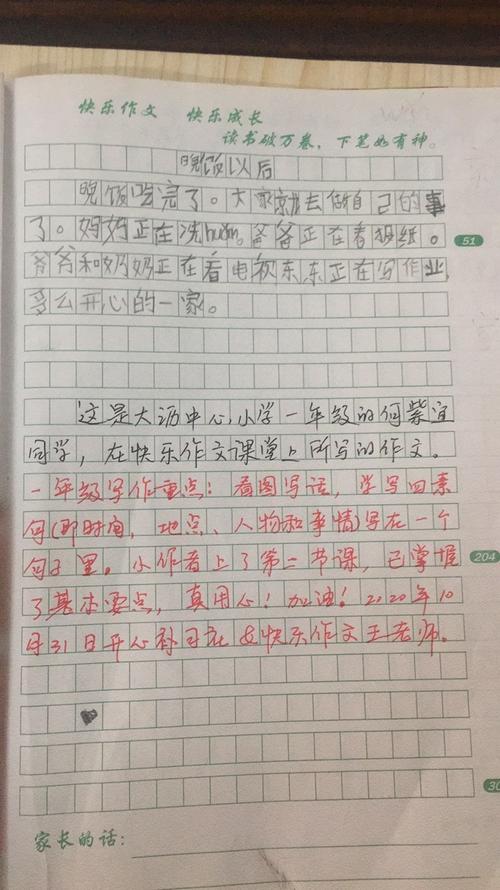 快乐作文 快乐成长
读书破万卷，下笔如有神。
晚饭以后
晚饭吃完了。大家就去做自己的事
了。妈妈正在洗huǎn。爸爸正在看报纸。
爷爷和奶奶正在看电视东东正在写作业，
多么开心的一家。
51
这是大沥中心小学一年级的何紫宜
同学，在快乐作文课堂上所写的作文。
一年级写作重点：看图写话，学写四素
句(即时间，地点、人物和事情)写在一个
句子里。小作者上了第二节课，已掌握
204
了基本要点，真用心！加油！2020年10
月31日开心补习社&快乐作文王老师。
30
家长的话：